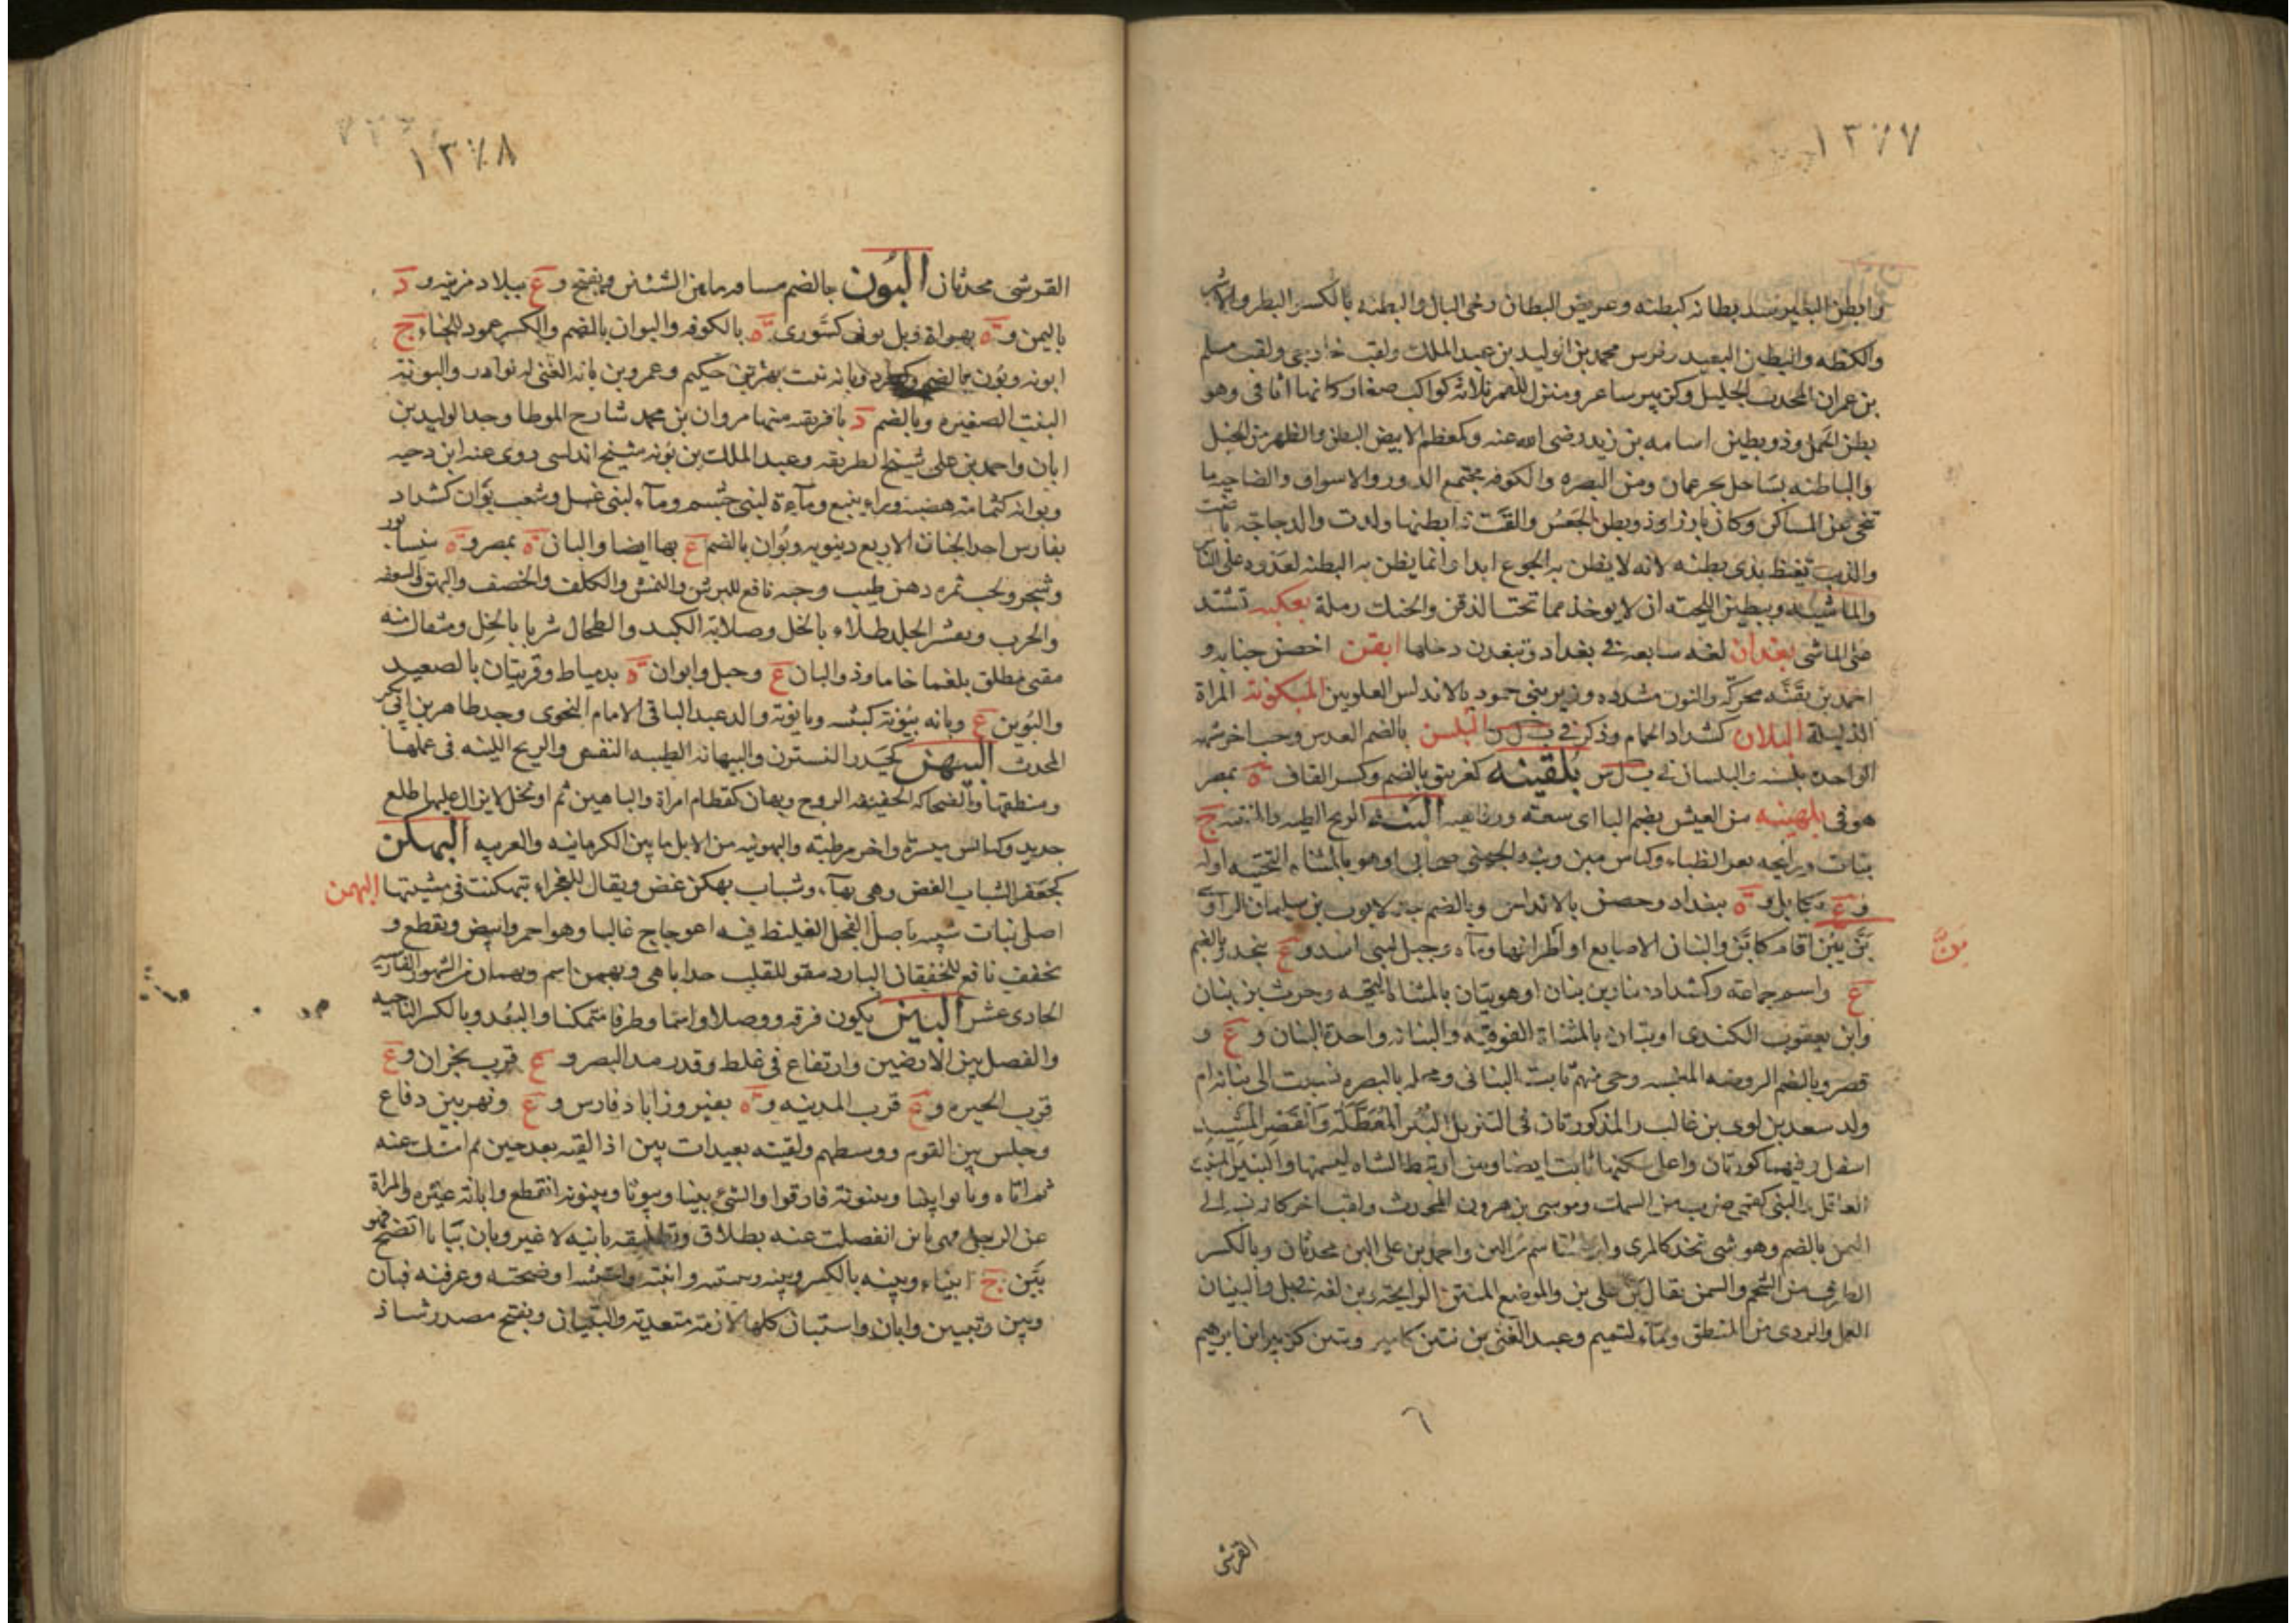 ١٣٧٧
وابطن البعير شد بطانه كبطنه وعريض البطان رخي البال والبطنة بالكسر البطر والاشر
والكظة والبطين البعيد وفرس محمد بن الوليد بن عبد الملك ولقب خارجي ولقب مسلم
بن عمران المحدث الجليل وكزبير شاعر ومنزل للقمر ثلاثة كواكب صغار كانها اثافي وهو
بطن الحمل وذو بطين اسامه بن زيد رضي الله عنه وكمعظم الابيض البطن والظهر من الخيل
والباطنه بساحل بحر عمان ومن البصره والكوفه مجتمع الدور والاسواق والضاحيه ما
تنحى عن المساكن وكان بارزا وذو بطن الجعس والقت ذا بطنها ولدت والدجاجة باضت
والذيب يغبط بذي بطنه لانه لا يظن به الجوع ابدا وانما يظن به البطنة لعدوه على الناس
والماشيه وتبطين اللحية ان لا يوخذ مما تحت الذقن والحنك رملة بعكنه تشتد
على الماشي بغدان لغه سابعه في بغداد وتبغدن دخلها ابقن اخصب جنابه و
احمد بن بقنه محركة والنون مشدده وزير بني حمود بالاندلس العلويين المبكونة المراة
الذليلة البلان كشداد الحمام وذكر في ب ل ل البلسن بالضم العدس وحب اخر يشبهه
الواحدة بلسنه والبلسان في ب ل س بلقينه كغرنيق بالضم وكسر القاف ة بمصر
هو في بلهنيه من العيش بضم البا اي سعه ورفاهيه البنه الريح الطيبه والمنتنه ج
بنان ورايحه بعر الظباء وكناس مبن وبنه الجهني صحابي او هو بالمثناه التحتيه اوله
وع بكابل وة ببغداد وحصن بالاندلس وبالضم جد لايوب بن سليمان الرازي
بن
بن يبن اقام كابن والبنان الاصابع او اطرافها وماء وجبل لبني اسد وع بنجد وبالضم
ع واسم جماعه وكشداد دينار بن بنان او هو بيان بالمثناة التحتيه وحرث بن بنان
وابن يعقوب الكندي او بتان بالمثناة الفوقيه والبنانه واحدة البنان وع و
قصر وبالضم الروضه المعشبه وحي منهم ثابت البناني ومحله بالبصره نسبت الى بنانه ام
ولد سعد بن لوي بن غالب والمذكورتان في التنزيل البئر المعطلة والقصر المشيد
اسفل وفيهما كورتان واعلى سكنها ثابت ايضا وبنن ارتبط الشاه ليسمنها والبنين المثبت
العاقل والبني كقمي ضرب من السمك وموسى بن هرون المحدث ولقب اخر كانه نسبه الى
البن بالضم وهو شي يتخذ كالمري وابن اسم من البن واحمد بن علي البن محدثان وبالكسر
الطرق من الشحم والسمن يقال بن على بن والموضع المنتن الرايحة وبن لغه في بل والبنبان
العمل والردي من المنطق وماء لتميم وعبد الغني بن بنين كامير وبنين كزبير ابن ابرهيم
القرشي
١٣٧٨
القرشي محدثان البون بالضم مسافه ما بين الشيئين ويفتح وع ببلاد مزينه ود
باليمن وة بهراة وبل بونى كشورى ة بالكوفه والبوان بالضم والكسر عمود للخباء ج
ابونه وبون بالضم وبانه بنت بهز بن حكيم وعمرو بن بانه المغني له نوادر والبونة
البنت الصغيره وبالضم د بافريقه منها مروان بن محمد شارح الموطا وجد الوليد بن
ابان واحمد بن علي شيخ الطريقه وعبد الملك بن بونه شيخ اندلسي روى عنه ابن دحيه
وبوانه كثمامة هضبه وراء ينبع وماءة لبني جشم وماء لبني عقيل وشعب بوان كشداد
بفارس احد الجنان الاربع دنيويه وبوان بالضم ع بها ايضا والبان ة بمصر وة بنيسابور
وشجر ولحب ثمره دهن طيب وحبه نافع للبرش والنمش والكلف والحصف والبهق والسعفه
والجرب وتقشر الجلد طلاء بالخل وصلابة الكبد والطحال شربا بالخل ومثقال منه
مقيي مطلق بلغما خاما وذو البان ع وجبل وابوان ة بدمياط وقريتان بالصعيد
والبوين ع وبانه يبونه كبينه وبابونة والد عبد الباقي الامام النحوي وجد طاهر بن ابي بكر
المحدث البيهن كحيدر النسترن والبهنانة الطيبه النفس والريح اللينه في عملها
ومنطقها والضحاكه الخفيفه الروح وبهان كقطام امراة والباهين تمر او نخل لا يزال عليها طلع
جديد وكبائس مبسرة واخر مرطبه والبهونيه من الابل ما بين الكرمانيه والعربيه البهكن
كجعفر الشباب الغض وهي بهاء وشباب بهكن غض ويقال للعجزاء تبهكنت في مشيتها البهمن
اصل نبات شبيه باصل الفجل الغليظ فيه اعوجاج غالبا وهو احمر وابيض ويقطع و
يجفف نافع للخفقان البارد مقو للقلب جدا باهي وبهمن اسم وبهمان من الشهور الفارسيه
الحادي عشر البين يكون فرقه ووصلا واسما وظرفا متمكنا والبعد وبالكسر الناحيه
والفصل بين الارضين وارتفاع في غلظ وقدر مد البصر وع قرب نجران وع
قرب الحيره وع قرب المدينه وة بفيروزاباد فارس وع ونهر بين دفاع
وجلس بين القوم ووسطهم ولقيته بعيدات بين اذا لقيه بعد حين ثم امسك عنه
ثم اتاه وبانوا بينا وبينونة فارقوا والشئ بينا وبيونا وبينونه انقطع وابانه غيره والمراة
عن الرجل فهي باين انفصلت عنه بطلاق وتطليقه باينه لا غير وبان بيانا اتضح فهو
بين ج ابيناء وبينه بالكسر وبينه وتبينته وابنته واستبنته اوضحته وعرفته فبان
وبين وتبين وابان واستبان كلها لازمة متعدية والتبيان ويفتح مصدر شاذ